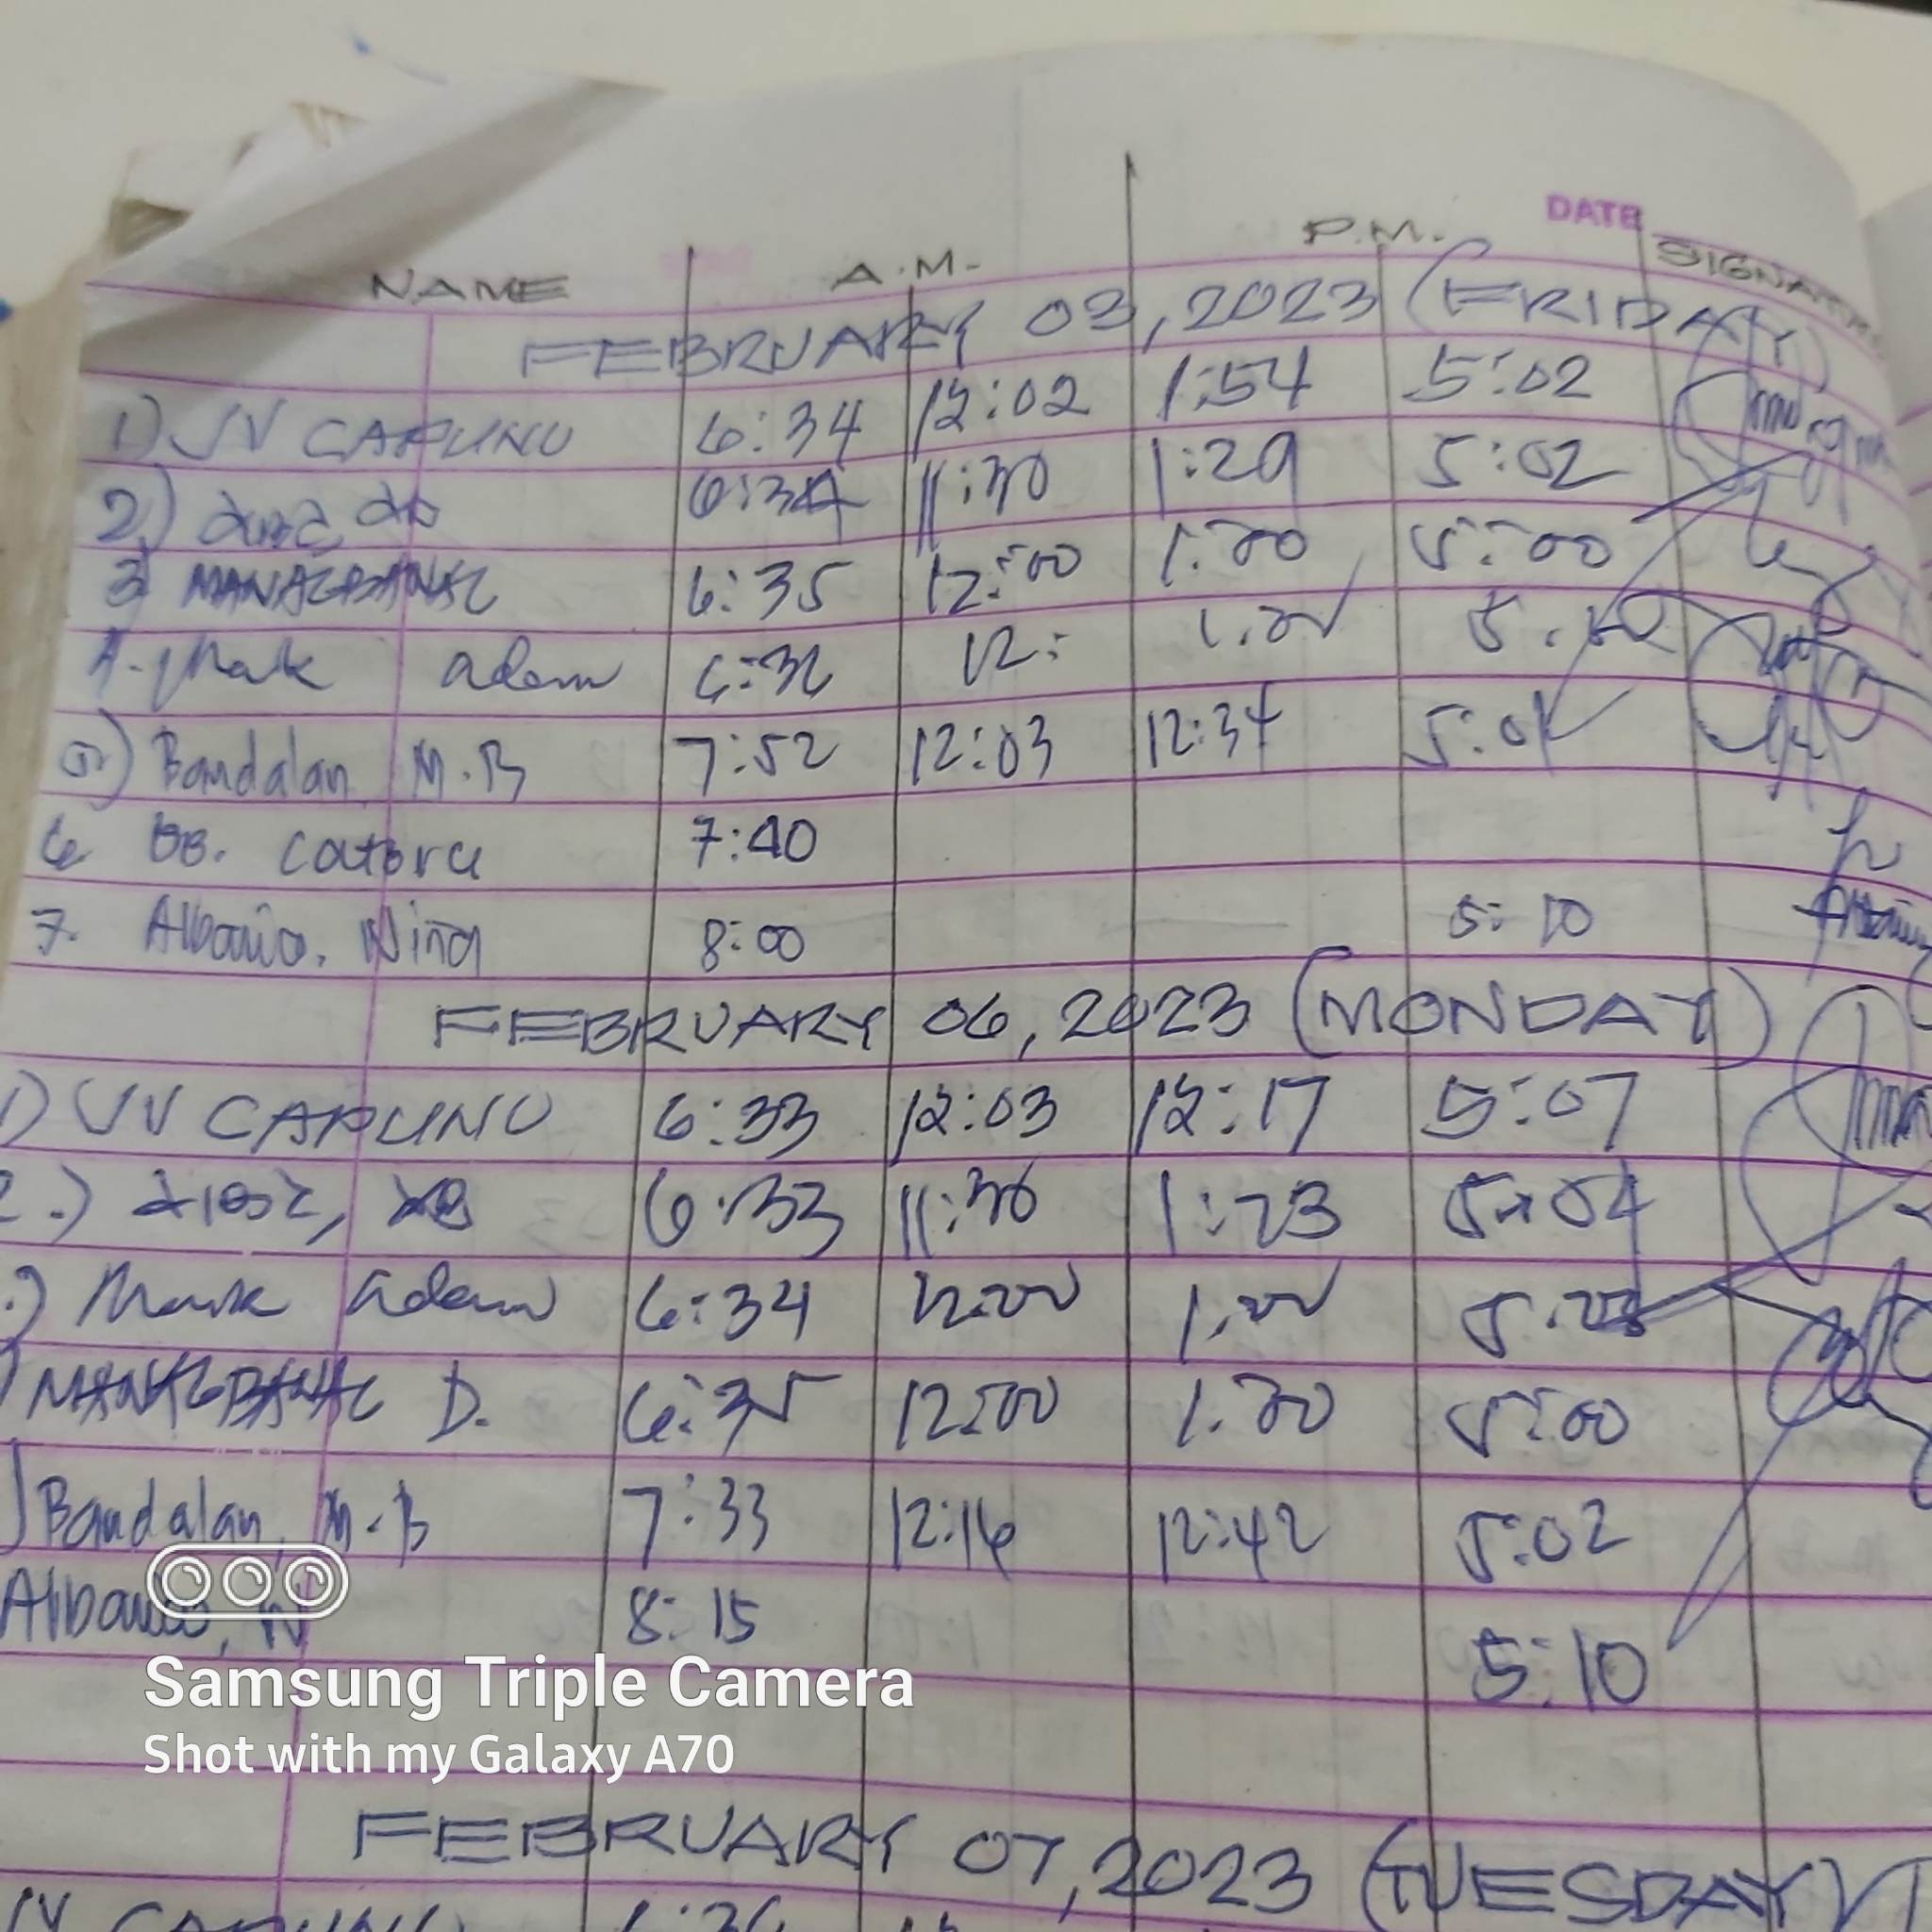 DATE
NAME A.M. P.M.
FEBRUARY 03, 2023 (FRIDAY)
1) JV CAPUNO 6:34 12:02 1:54 5:02
2) 6:34 11:30 1:29 5:02
3) MANAGBANAG 6:35 12:00 1:00 5:00
4. Mark adem 12: 1:00
5) Bandalan M.B 7:52 12:03 12:34 5:01
6 BB. 7:40
7. Albaño, Nina 8:00 5:10
FEBRUARY 06, 2023 (MONDAY)
1) JV CAPUNO 6:33 12:03 12:17 5:07
2.) 6:33 11:36 1:23 5:04
.) Mark adem 6:34 12:00 1:00
) MANAGBANAG D. 6:35 12:00 1:00 5:00
) Bandalan, M.B 7:33 12:16 12:42 5:02
Albaño, N 8:15 5:10
Samsung Triple Camera
Shot with my Galaxy A70
FEBRUARY 07, 2023 (TUESDAY)
JV CAPUNO